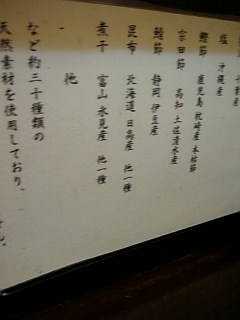 千葉産
塩 沖縄産
鰹節 鹿児島 枕崎産 本枯節
宗田節 高知 土佐清水産
鯖節 静岡 伊豆産
昆布 北海道 日高産 他一種
煮干 富山 氷見産 他一種
他
など約三十種類の
天然素材を使用しており、